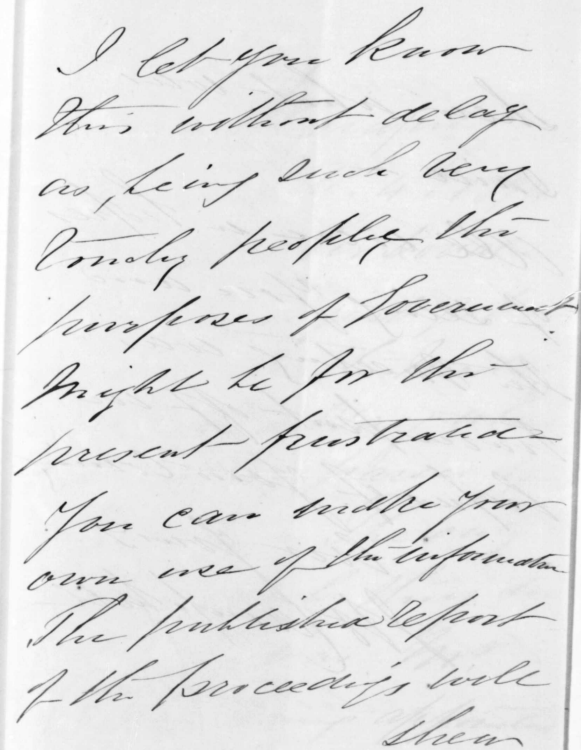 I let you know
this without delay
as, being such very
touchy people, the
purposes of Government
might be for the
present frustrated–
You can make your
own use of the information
The published report
of the proceedings will
shew